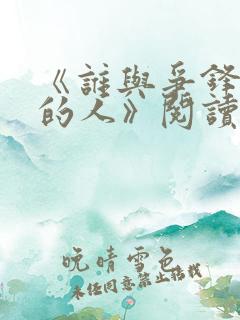 《誰與爭鋒
的人》閱讀
晚晴雪色
未經同意禁止榙戕